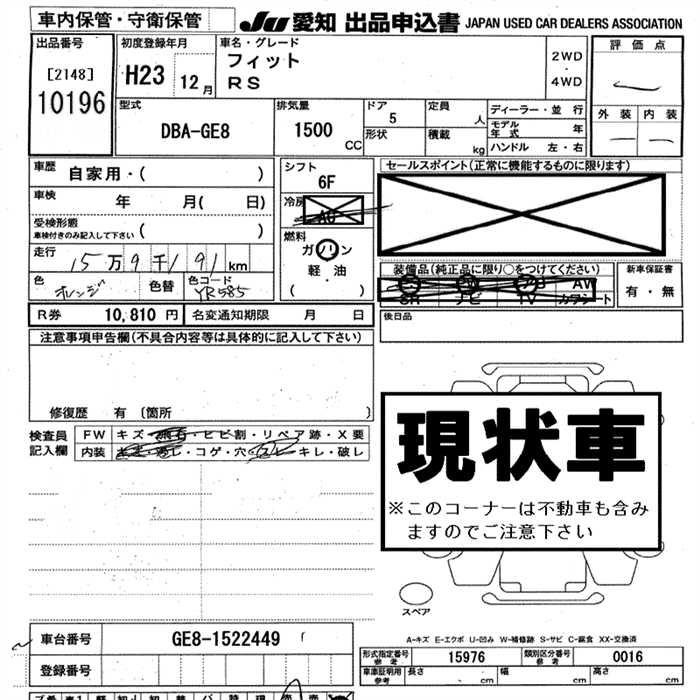 車内保管・守衛保管
JU 愛知 出品申込書 JAPAN USED CAR DEALERS ASSOCIATION
出品番号
[2148]
10196
初度登録年月
H23 12月
車名・グレード
フィット
RS
2WD
・
4WD
評価点
外装 内装
型式
DBA-GE8
排気量
1500 CC
ドア
5
形状
定員 人
積載 kg
ディーラー・並行
モデル年式 年
ハンドル 左・右
車歴 自家用・( )
車検 年 月( 日)
受検形態
車検付きのみ記入して下さい ( )
走行
15万9千191km
色 オレンジ
色替
色コード YR585
シフト
6F
冷房
AC
燃料
ガソリン
軽・油
( )
セールスポイント(正常に機能するものに限ります)
装備品(純正品に限り○をつけてください)
AW
SR ナビ TV カワシート
新車保証書
有・無
R券 10,810円 名変通知期限 月 日
後日品
注意事項申告欄(不具合内容等は具体的に記入して下さい)
修復歴 有〔箇所 〕
検査員
記入欄
FW キズ・飛石・ヒビ割・リペア跡・X要
内装 キズ・汚レ・コゲ・穴・スレ・キレ・破レ
現状車
※このコーナーは不動車も含み
ますのでご注意下さい
スペア
A-キズ E-エクボ U-凹み W-補修跡 S-サビ C-腐食 XX-交換済
車台番号 GE8-1522449
登録番号
形式指定番号
参考
15976
類別区分番号
参考
0016
車庫証明用
参考
長さ cm 幅 cm 高さ cm